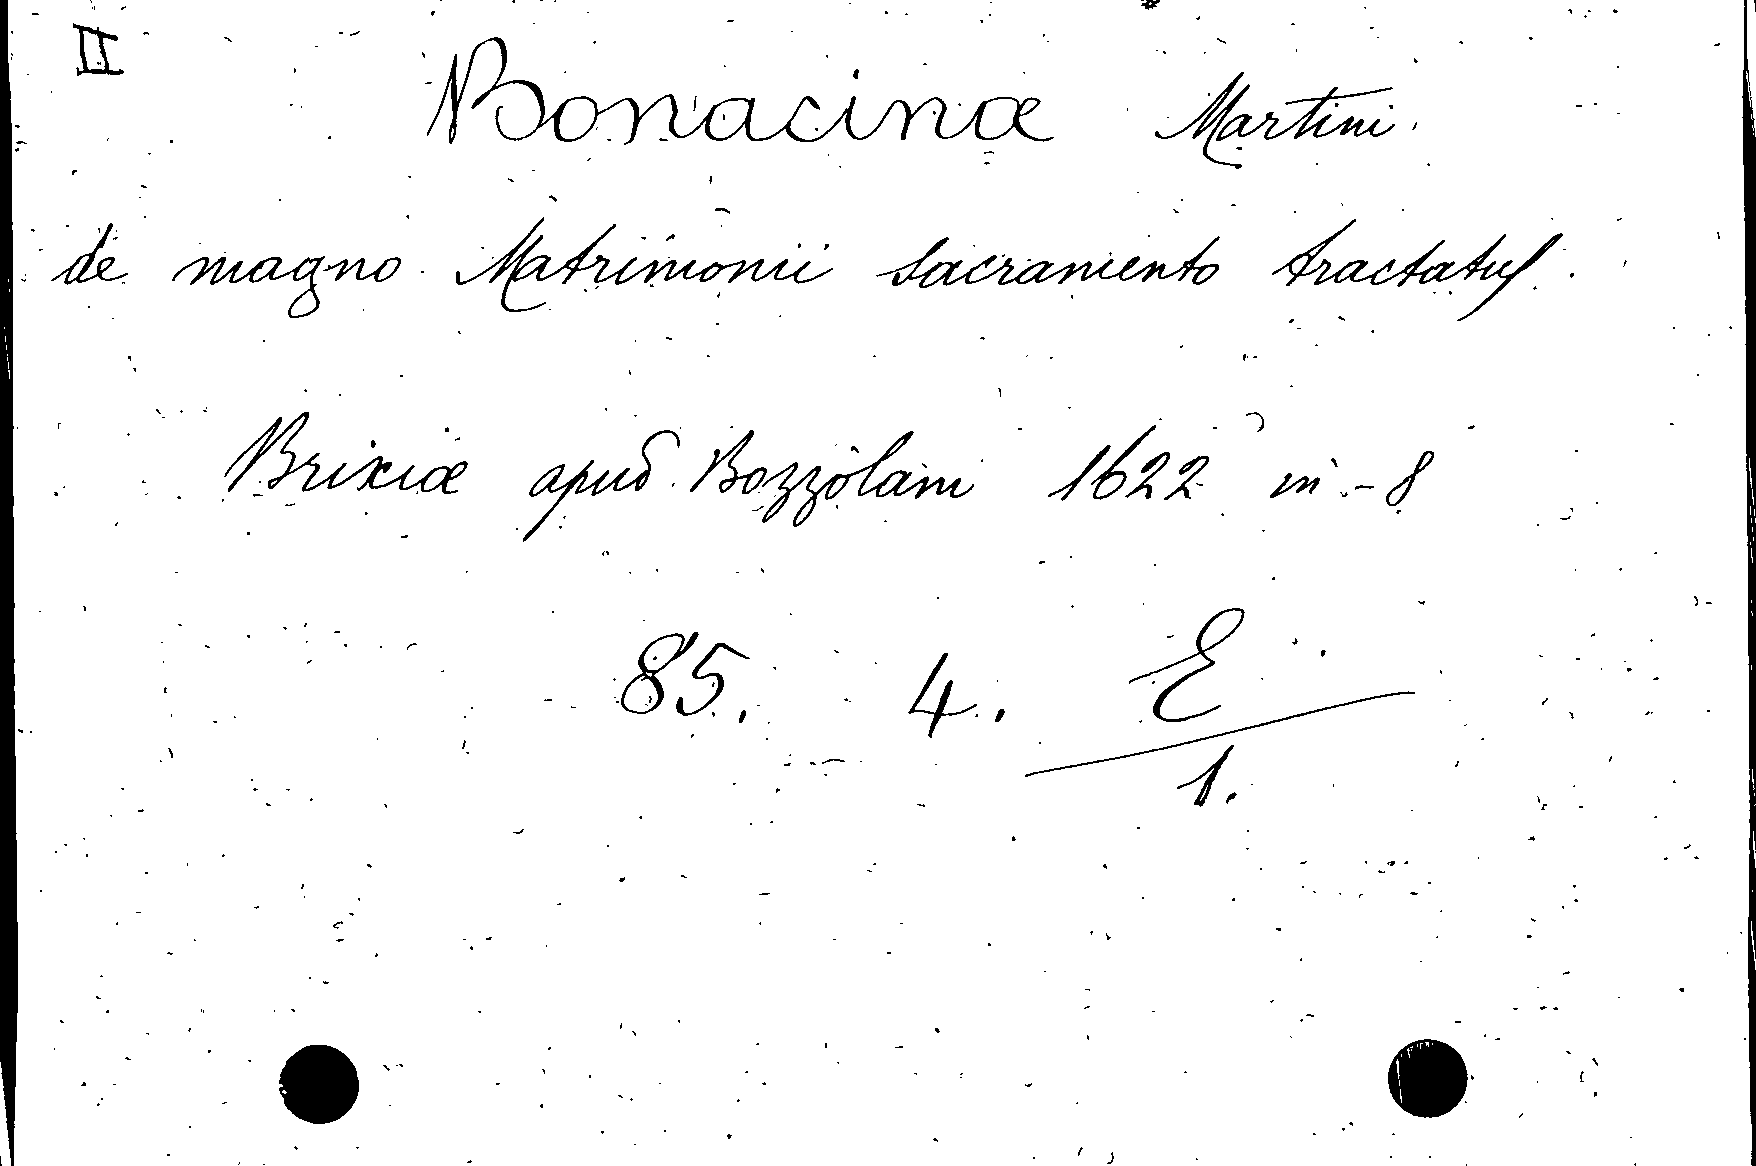 II
Bonacinæ Martini
de magno Matrimonii sacramento tractatus
Brixiæ apud Bozzolam 1622 in-8
85. 4. E
1.